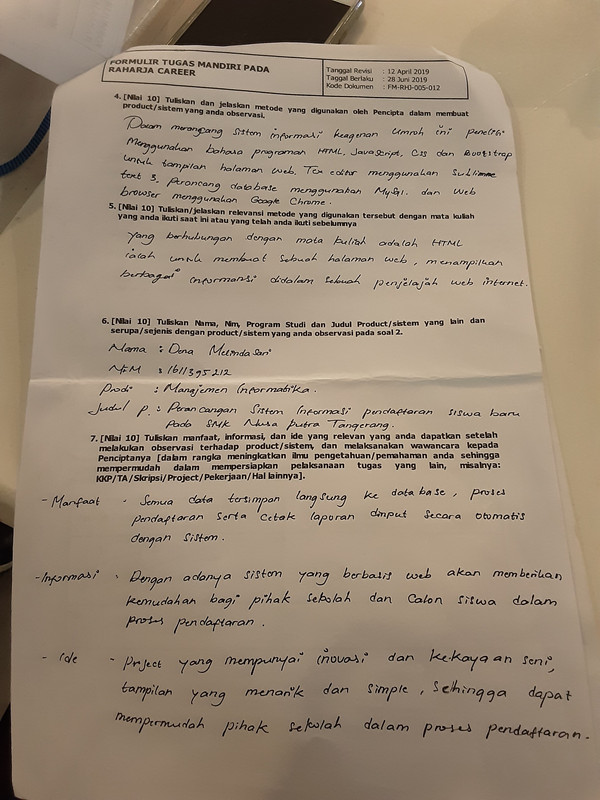 FORMULIR TUGAS MANDIRI PADA
RAHARJA CAREER
Tanggal Revisi : 12 April 2019
Taggal Berlaku : 28 Juni 2019
Kode Dokumen : FM-RHJ-005-012
4. [Nilai 10] Tuliskan dan jelaskan metode yang digunakan oleh Pencipta dalam membuat
product/sistem yang anda observasi.
Dalam merancang sistem informasi keagenan umroh ini peneliti
Menggunakan bahasa programan HTML, JavaScript, CSS dan Bootstrap
untuk tampilan halaman web. Tex editor menggunakan sublime
text 3, perancang database menggunakan MySql. dan Web
browser menggunakan Google Chrome.
5. [Nilai 10] Tuliskan/jelaskan relevansi metode yang digunakan tersebut dengan mata kuliah
yang anda ikuti saat ini atau yang telah anda ikuti sebelumnya
Yang berhubungan dengan mata kuliah adalah HTML
ialah untuk membuat sebuah halaman web, menampilkan
berbagai informansi didalam sebuah penjelajah web internet.
6. [Nilai 10] Tuliskan Nama, Nim, Program Studi dan Judul Product/sistem yang lain dan
serupa/sejenis dengan product/sistem yang anda observasi pada soal 2.
Nama : Dona Melinda Sari
NIM : 1611395212
Prodi : Manajemen Informatika.
Judul p. : Perancangan Sistem Informasi pendaftaran siswa baru
Pada SMK Nusa Putra Tangerang.
7. [Nilai 10] Tuliskan manfaat, informasi, dan ide yang relevan yang anda dapatkan setelah
melakukan observasi terhadap product/sistem, dan melaksanakan wawancara kepada
Penciptanya [dalam rangka meningkatkan ilmu pengetahuan/pemahaman anda sehingga
mempermudah dalam mempersiapkan pelaksanaan tugas yang lain, misalnya:
KKP/TA/Skripsi/Project/Pekerjaan/Hal lainnya].
- Manfaat - Semua data tersimpan langsung ke database, proses
pendaftaran serta cetak laporan dinput secara otomatis
dengan sistem.
- Informasi . Dengan adanya sistem yang berbasis web akan memberikan
kemudahan bagi pihak sekolah dan calon siswa dalam
proses pendaftaran.
- Ide - Prject yang mempunyai inovasi dan kekayaan seni,
tampilan yang menarik dan simple, sehingga dapat
mempermudah pihak sekolah dalam proses pendaftaran.